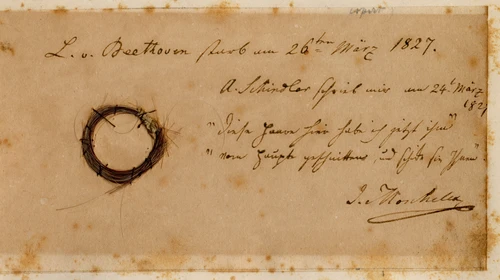 L. v. Beethoven starb am 26ten März 1827.
A. Schindler schrieb mir am 24t März
1827
"diese Haare hier habe ich jetzt ihm"
"vom Haupte geschnitten, und schicke sie Ihnen"